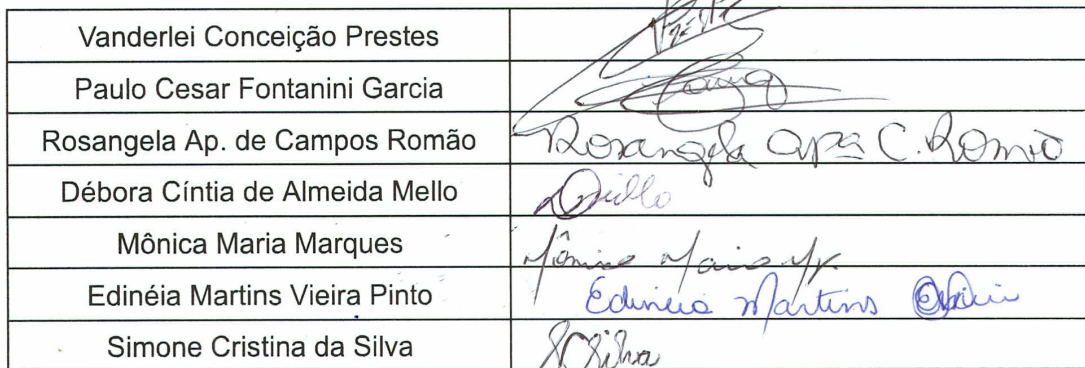 Vanderlei Conceição Prestes
Paulo Cesar Fontanini Garcia
Rosangela Ap. de Campos Romão Rosangela Apª C. Romão
Débora Cíntia de Almeida Mello
Mônica Maria Marques Mônica Maria
Edinéia Martins Vieira Pinto Edinéia Martins
Simone Cristina da Silva SCSilva